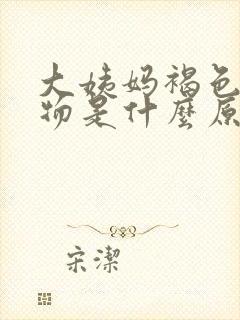 大姨妈褐色
物是什麼原
宋潔